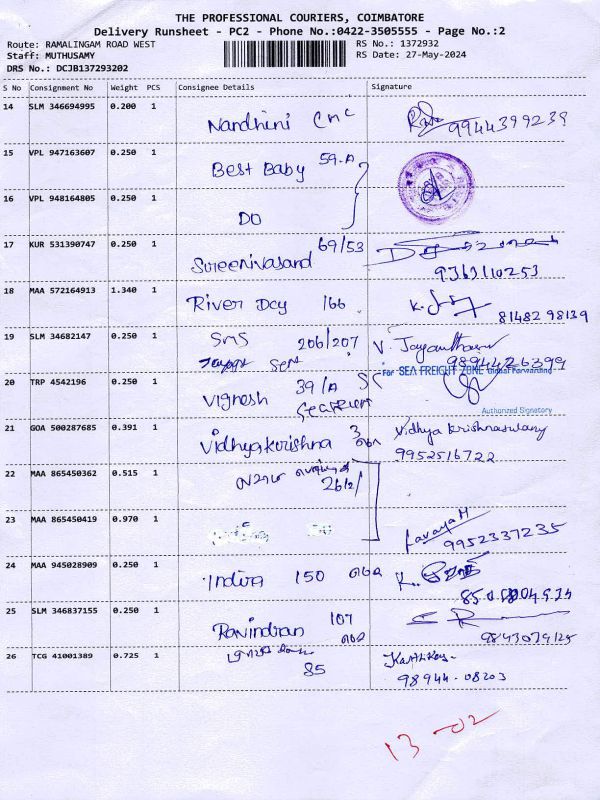 THE PROFESSIONAL COURIERS, COIMBATORE
Delivery Runsheet - PC2 - Phone No.:0422-3505555 - Page No.:2
Route: RAMALINGAM ROAD WEST
RS No.: 1372932
Staff: MUTHUSAMY
RS Date: 27-May-2024
DRS No.: DCJB137293202
S No Consignment No Weight PCS Consignee Details Signature
14 SLM 346694995 0.200 1 Nandhini CMC 9944399239
15 VPL 947163607 0.250 1 Best Baby 59-A
16 VPL 948164805 0.250 1 DO
17 KUR 531390747 0.250 1 Sureenivasand 69/53
9363110253
18 MAA 572164913 1.340 1 River Dcy 166 81482 98139
19 SLM 34682147 0.250 1 SMS 206/207 V. Jayanthan
9894426399
For SEA FREIGHT ZONE Global Forwarding
20 TRP 4542196 0.250 1 Vignesh 39/A
Authorized Signatory
21 GOA 500287685 0.391 1 Vidhyakrishna 3 Vidhya Krishnaswamy
9952516722
22 MAA 865450362 0.515 1 26/2/
23 MAA 865450419 0.970 1 Lavanya M
9952337235
24 MAA 945028909 0.250 1 Indira 150
25 SLM 346837155 0.250 1 Ravindran 107
9843079125
26 TCG 41001389 0.725 1 85 Karthikey-
98944-08203
13-02